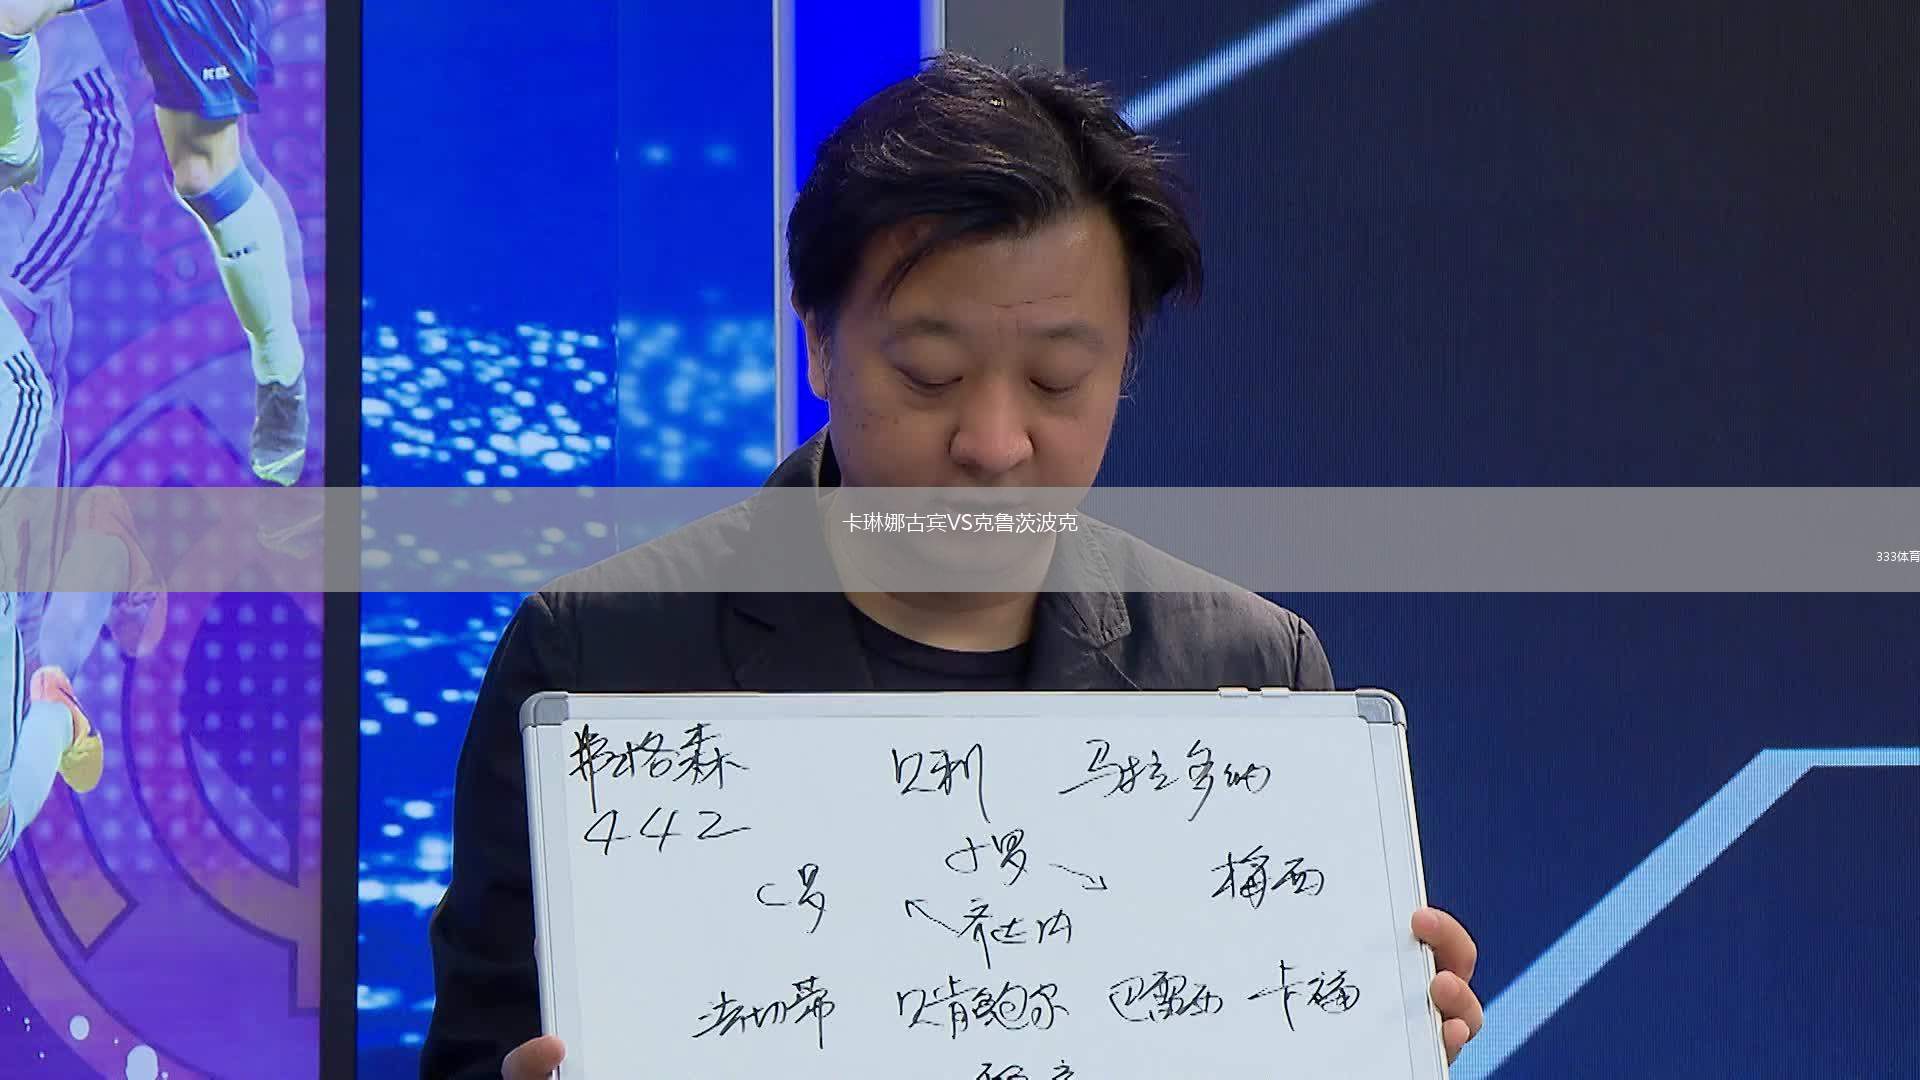 卡琳娜古宾VS克鲁茨波克
333体育
弗格森 贝利 马拉多纳
442
小罗
C罗 梅西
齐达内
法切蒂 贝肯鲍尔 巴雷西 卡福